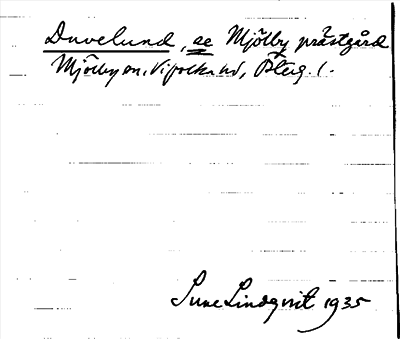 Duvelund, se Mjölby prästgård
Mjölby sn, Vifolka hd, Ötlg.
Sune Lindqvist 1935